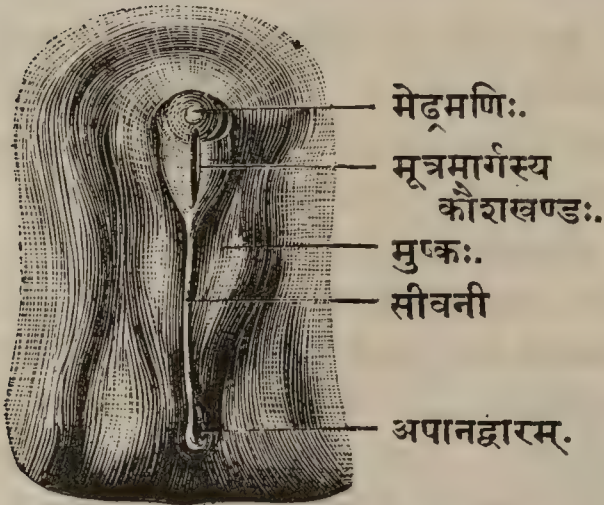 मेढ्रमणिः.
मूत्रमार्गस्य
कौशखण्डः.
मुष्कः.
सीवनी
अपानद्वारम्.